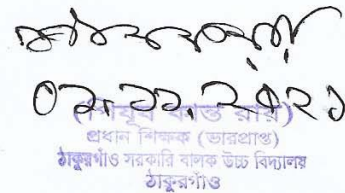 ০৯.১১.২০২১
(পিযূষ কান্ত রায়)
প্রধান শিক্ষক (ভারপ্রাপ্ত)
ঠাকুরগাঁও সরকারি বালক উচ্চ বিদ্যালয়
ঠাকুরগাঁও